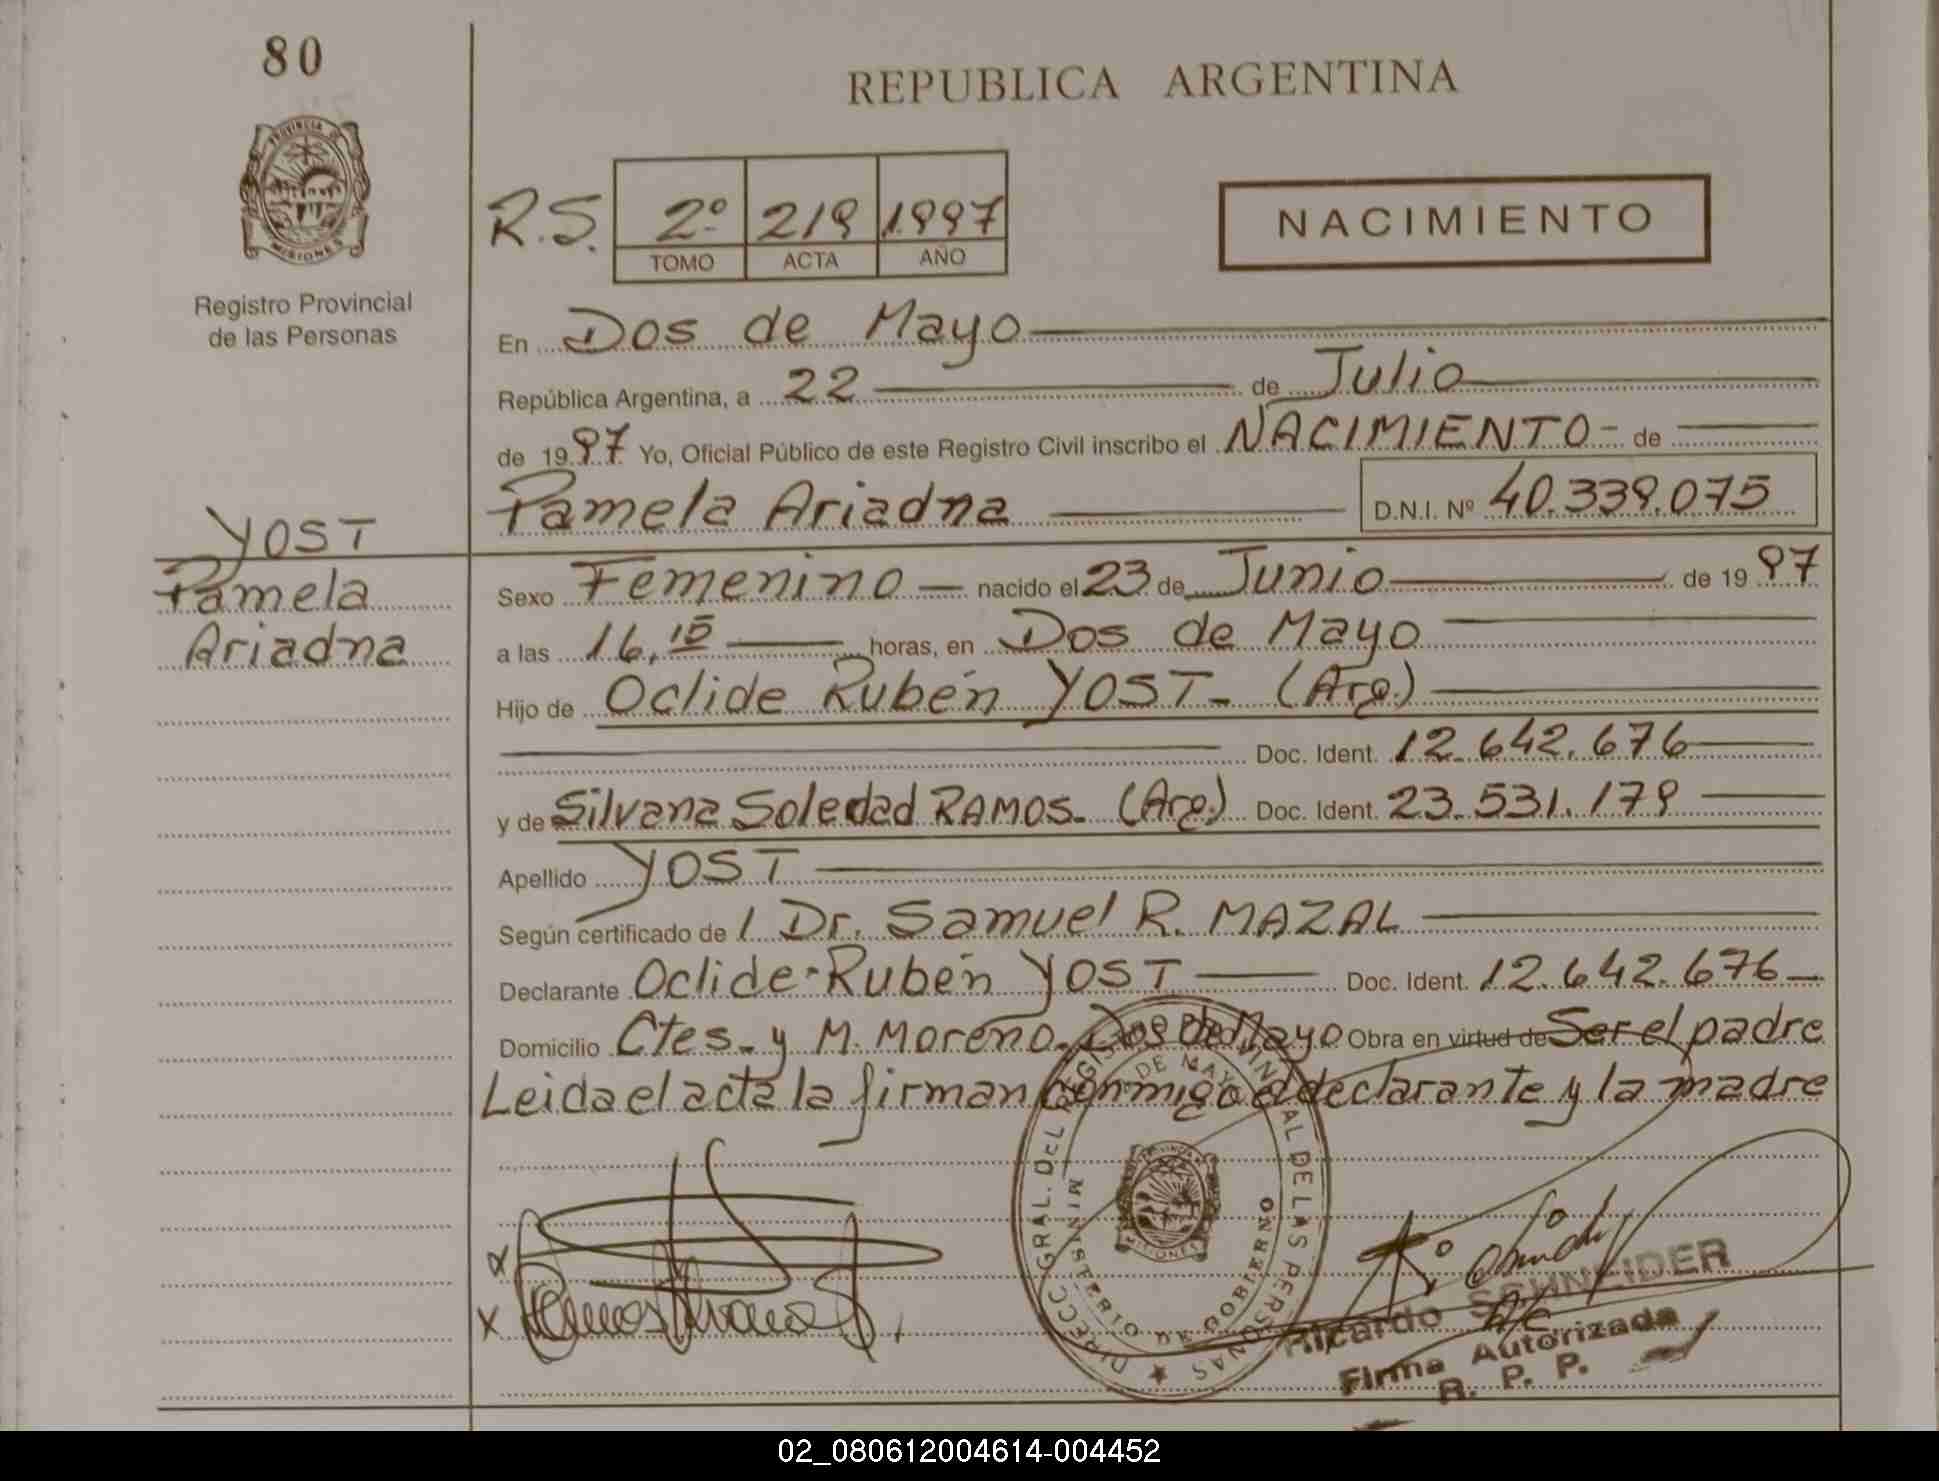 80
REPUBLICA ARGENTINA
PROVINCIA DE
MISIONES
Registro Provincial
de las Personas
R.S. 2º 219 1997
TOMO ACTA AÑO
NACIMIENTO
En Dos de Mayo
República Argentina, a 22 de Julio
de 1997 Yo, Oficial Público de este Registro Civil inscribo el NACIMIENTO - de
Pamela Ariadna D.N.I. Nº 40.339.075
YOST
Pamela
Ariadna
Sexo Femenino nacido el 23 de Junio de 1997
a las 16,15 horas, en Dos de Mayo
Hijo de Oclide Rubén YOST- (Arg.)
Doc. Ident. 12.642.676
y de Silvana Soledad RAMOS- (Arg.) Doc. Ident. 23.531.179
Apellido YOST
Según certificado de l Dr. Samuel R. MAZAL
Declarante Oclide-Rubén YOST Doc. Ident. 12.642.676
Domicilio Ctes. y M. Moreno. Dos de Mayo Obra en virtud de Ser el padre
Leida el acta la firman conmigo el declarante y la madre
DIRECC GRAL. DEL REGISTRO PROVINCIAL DE LAS PERSONAS
DE MAYO
MINISTERIO DE GOBIERNO
MISIONES
x
x Ramos Silvana S.
Ricardo SCHNEIDER
Firma Autorizada
R. P. P.
02_080612004614-004452